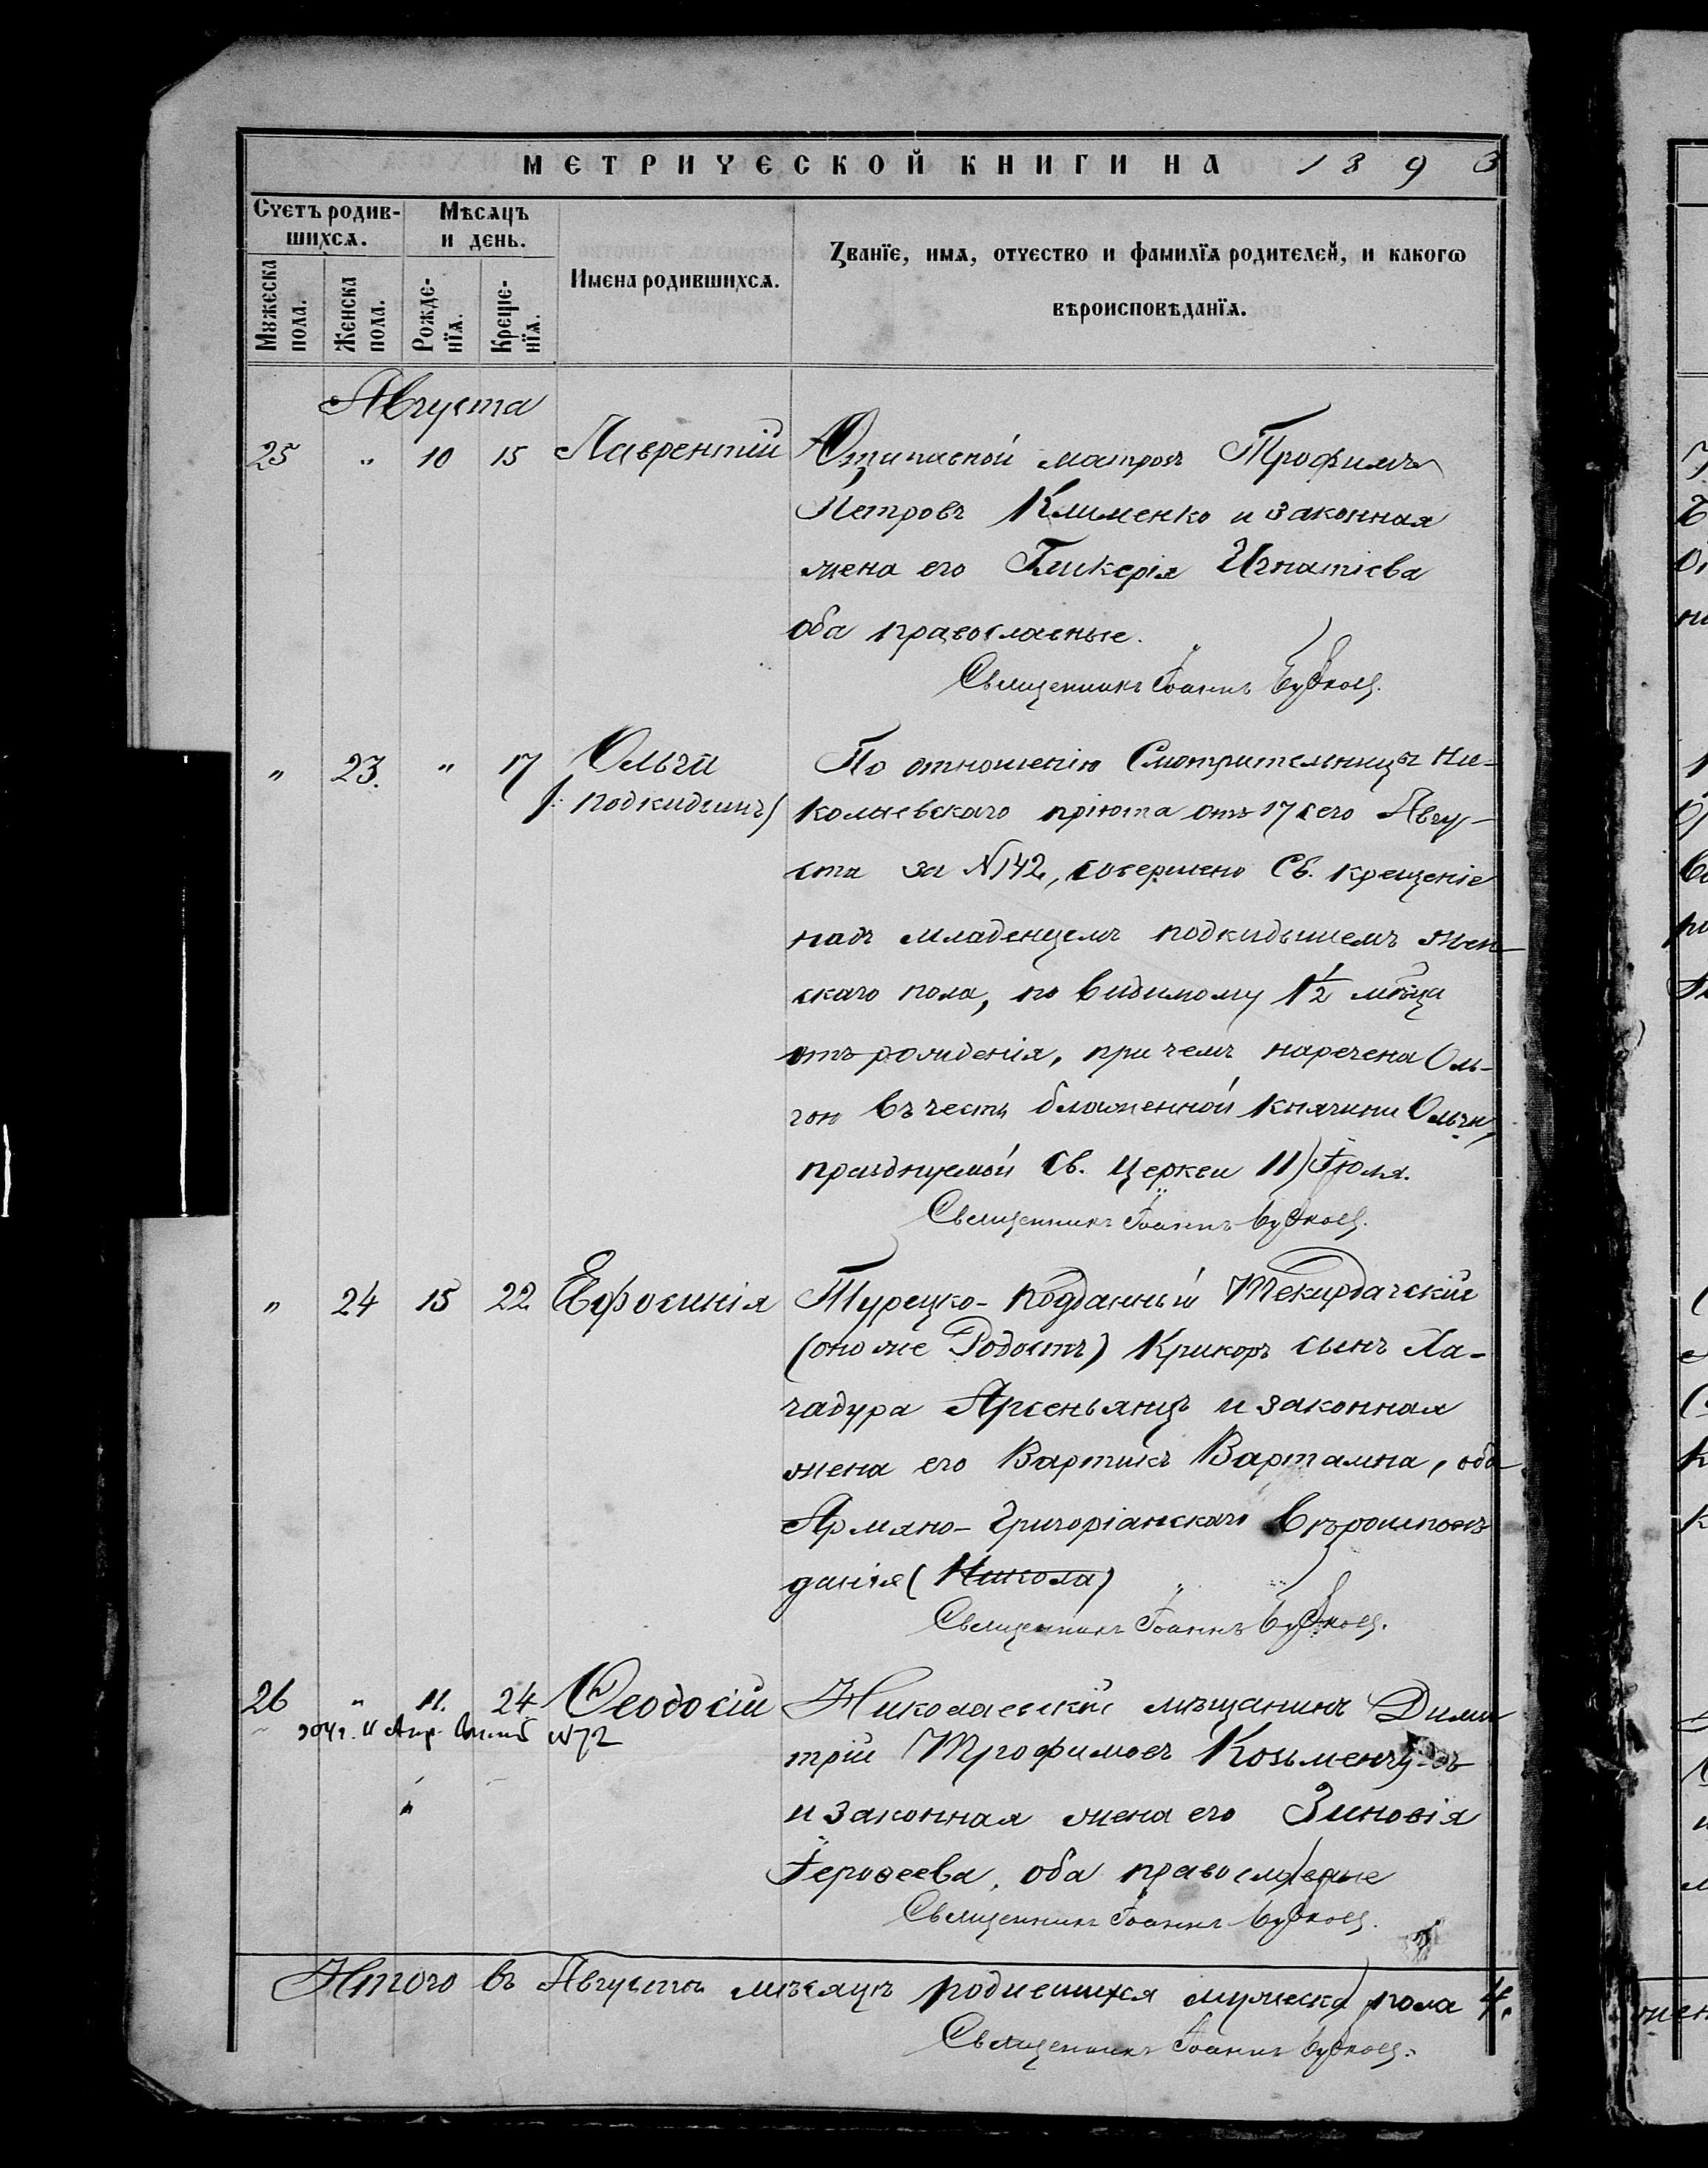 МЕТРИЧЕСКОЙ КНИГИ НА 1893
Счетъ родив-
шихсѧ.
Мѣсѧцъ
и день.
Имена родившихсѧ.
Ꙁванїе, имѧ, отчество и фамилїѧ родителей, и какогѡ
вѣроисповѣданїѧ.
Мꙋжеска
пола.
Женска
пола.
Рожде-
нїѧ.
Креще-
нїѧ.
Августа
25 " 10 15 Лаврентій Отставной матросъ Трофимъ
Петровъ Клименко и законная
жена его Гликерія Игнатіева
оба православные.
Священникъ Іоаннъ
" 23. " 17 Ольга По отношенію Смотрительницы Ни-
(: подкидышъ) колаевскаго пріюта отъ 17 сего Авгу-
ста за №142, совершено Св. крещеніе
надъ младенцемъ подкидышемъ жен-
скаго пола, по видимому 1½ мѣсяца
отъ рожденія, при чемъ наречена Оль-
гою въ честь блаженной княгини Ольги,
празднуемой Св. Церкви 11) Іюля.
Священникъ Іоаннъ
" 24 15 22 Евфросинія Турецко-подданный Текирдагскій
(оно же Родостъ) Крикоръ сынъ Ха-
чадура Арсеньянцъ и законная
жена его Вартикъ Вартамна, оба
Армяно-Григоріанскаго вѣроисповѣ
данія (Никола)
Священникъ Іоаннъ
26 " 11. 24 Ѳеодосій Николаевскій мѣщанинъ Дими
904 г. 11 Апр. №72
трій Трофимовъ
и законная жена его Зиновія
Іероѳеева, оба православные
Священникъ Іоаннъ
Итого въ Августѣ мѣсяцѣ родившихся мужеска пола 4.
Священникъ Іоаннъ